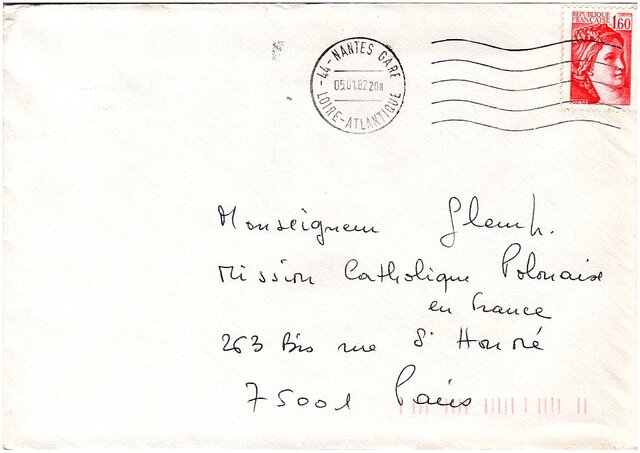 44-NANTES GARE
05.01.82 20H
LOIRE-ATLANTIQUE
REPUBLIQUE
FRANÇAISE
1,60
POSTES
Monseigneur Glemp.
Mission Catholique Polonaise
en France
263 Bis rue St Honoré
75001 Paris